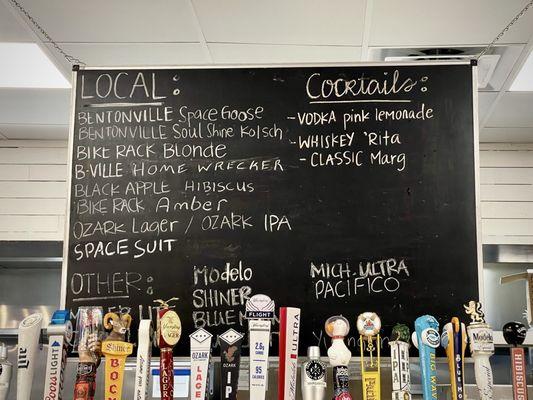 LOCAL :
BENTONVILLE Space Goose
BENTONVILLE Soul Shine Kolsch
BIKE RACK Blonde
B-VILLE HOME WRECKER
BLACK APPLE HIBISCUS
BIKE RACK Amber
OZARK Lager / OZARK IPA
SPACE SUIT
OTHER:
Modelo
SHINER
BLUE
Cocktails:
-VODKA pink lemonade
-WHISKEY 'Rita
- CLASSIC Marg
MICH. ULTRA
PACIFICO
LIGHT
SHINER
BOCK
LAGER
LAGER
OZARK
LAGER
OZARK
IP
FLIGHT
2.6g
CARBS
95
ULTRA
IPA
Modelo